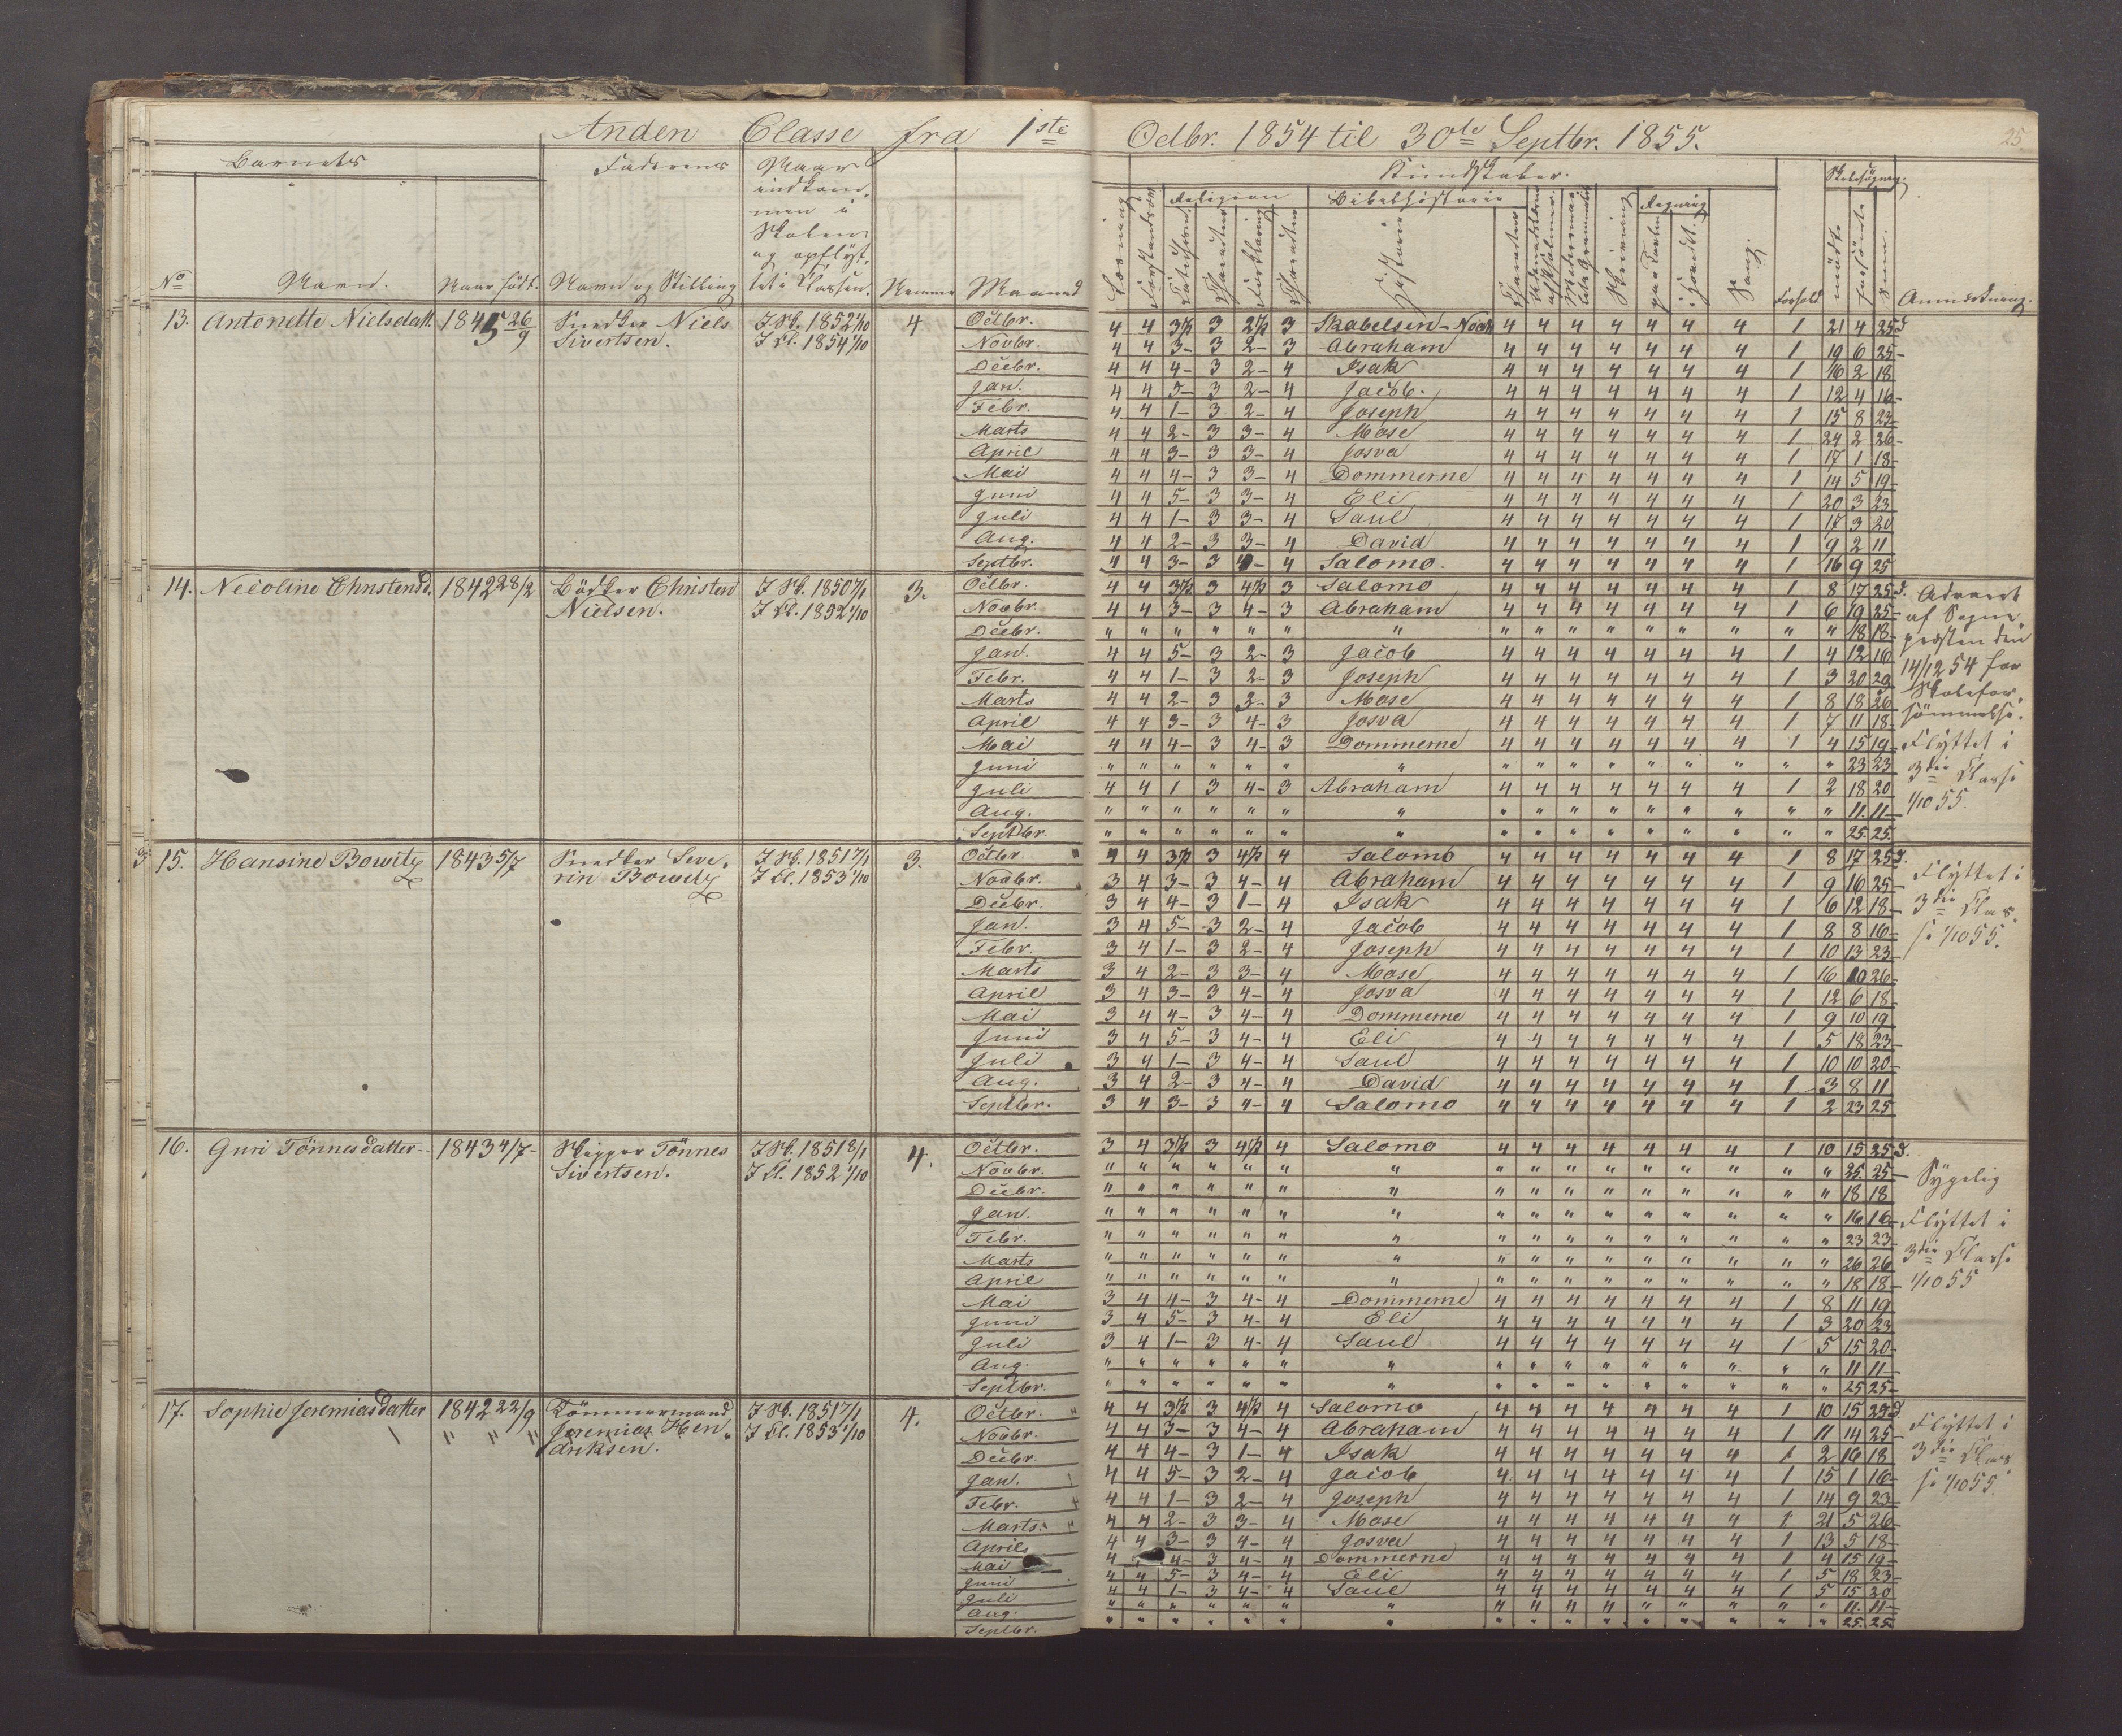 Anden Classe fra 1ste Octbr. 1854 til 30te Septbr. 1855.
25.
Barnets Faderens Naar indkommen i Skolen og opflyttet i Classen. Nummer Maaned
No Navn. Naar født. Navn og Stilling
Kundskaber. Skolesøgning. Anmærkning.
Religion Bibelhistorie Regning
Læsning Forstandsöv Characteer Forklaring Characteer Historie Characteer Skrivning paa Tavlen i Hovedet Sang. Forhold mödte forsömte Sum.
13. Antonette Nielsdatt. 1845 26/9 Snedker Niels Sivertsen. I Sk. 1852 1/10 I Cl. 1854 1/10 4
Octbr. 4 4 3½ 3 2½ 3 Skabelsen-Noah 4 4 4 4 4 4 4 1 21 4 25 d
Novbr. 4 4 3- 3 2- 3 Abraham 4 4 4 4 4 4 4 1 19 6 25-
Decbr. 4 4 4- 3 2- 4 Isak 4 4 4 4 4 4 4 1 16 2 18
Jan. 4 4 5- 3 2- 4 Jacob. 4 4 4 4 4 4 4 1 12 4 16-
Febr. 4 4 1- 3 2- 4 Joseph 4 4 4 4 4 4 4 1 15 8 23
Marts 4 4 2- 3 3- 4 Mose 4 4 4 4 4 4 4 1 24 2 26-
April 4 4 3- 3 3- 4 Josva 4 4 4 4 4 4 4 1 17 1 18-
Mai 4 4 4- 3 3- 4 Dommerne 4 4 4 4 4 4 4 1 14 5 19-
Juni 4 4 5- 3 3- 4 Eli 4 4 4 4 4 4 4 1 20 3 23
Juli 4 4 1- 3 3- 4 Saul 4 4 4 4 4 4 4 1 17 3 20
Aug. 4 4 2- 3 3- 4 David 4 4 4 4 4 4 4 1 9 2 11
Septbr. 4 4 3- 3 4- 4 Salomo. 4 4 4 4 4 4 4 1 16 9 25
14. Necoline Christensd. 1842 28/2 Bödker Christen Nielsen. I Sk. 1850 7/1 I Cl. 1852 1/10 3.
Octbr. 4 4 3½ 3 4½ 3 Salomo 4 4 4 4 4 4 4 1 8 17 25 d.
Novbr. 4 4 3- 3 4- 3 Abraham 4 4 4 4 4 4 4 1 6 19 25-
Decbr. " " " " " " " " " " " " " " " " 18 18-
Jan. 4 4 5- 3 2- 3 Jacob 4 4 4 4 4 4 4 1 4 12 16
Febr. 4 4 1- 3 2- 3 Joseph 4 4 4 4 4 4 4 1 3 20 23
Marts 4 4 2- 3 2- 3 Mose 4 4 4 4 4 4 4 1 8 18 26
April 4 4 3- 3 4- 3 Josva 4 4 4 4 4 4 4 1 7 11 18-
Mai 4 4 4- 3 4- 3 Dommerne 4 4 4 4 4 4 4 1 4 15 19-
Juni " " " " " " " " " " " " " " " " 23 23
Juli 4 4 1 3 4- 3 Abraham 4 4 4 4 4 4 4 1 2 18 20
Aug. " " " " " " " " " " " " " " " " 11. 11-
Septbr. " " " " " " " " " " " " " " " " 25. 25.
Advaret
af Sogne-
præsten den
14/12 54 for
Skolefor-
sömmelse.
Flyttet i
3die Classe
1/10 55.
15. Hansine Bowitz 1843 5/7 Snedker Severin Bowitz I Sk. 1851 7/1 I Cl. 1853 1/10 3.
Octbr. 4 4 3½ 3 4½ 4 Salomo 4 4 4 4 4 4 4 1 8 17 25 d.
Novbr. 3 4 3- 3 4- 4 Abraham 4 4 4 4 4 4 4 1 9 16 25-
Decbr. 3 4 4- 3 1- 4 Isak 4 4 4 4 4 4 4 1 6 12 18-
Jan. 3 4 5- 3 2- 4 Jacob 4 4 4 4 4 4 4 1 8 8 16-
Febr. 3 4 1- 3 2- 4 Joseph 4 4 4 4 4 4 4 1 10 13 23-
Marts 3 4 2- 3 3- 4 Mose 4 4 4 4 4 4 4 1 16 10 26-
April 3 4 3- 3 4- 4 Josva 4 4 4 4 4 4 4 1 12 6 18-
Mai 3 4 4- 3 4- 4 Dommerne 4 4 4 4 4 4 4 1 9 10 19
Juni 3 4 5- 3 4- 4 Eli 4 4 4 4 4 4 4 1 5 18 23-
Juli 3 4 1- 3 4- 4 Saul 4 4 4 4 4 4 4 1 10 10 20-
Aug. 3 4 2- 3 4- 4 David 4 4 4 4 4 4 4 1 3 8 11
Septbr. 3 4 3- 3 4- 4 Salomo 4 4 4 4 4 4 4 1 2 23 25
Flyttet i
3die Clas-
se 1/10 55.
16. Guri Tönnesdatter 1843 4/7 Skipper Tönnes Sivertsen. I Sk. 1851 8/1 I Cl. 1852 1/10 4.
Octbr. 3 4 3½ 3 4½ 4 Salomo 4 4 4 4 4 4 4 1 10 15 25 d.
Novbr. " " " " " " " " " " " " " " " " 25. 25-
Decbr. " " " " " " " " " " " " " " " " 18 18
Jan. " " " " " " " " " " " " " " " " 16 16-
Febr. " " " " " " " " " " " " " " " " 23 23-
Marts " " " " " " " " " " " " " " " " 26 26
April " " " " " " " " " " " " " " " " 18 18-
Mai 3 4 4- 3 4- 4 Dommerne 4 4 4 4 4 4 4 1 8 11 19
Juni 3 4 5- 3 4- 4 Eli 4 4 4 4 4 4 4 1 3 20 23
Juli 3 4 1- 3 4- 4 Saul 4 4 4 4 4 4 4 1 5 15 20-
Aug. " " " " " " " " " " " " " " " " 11 11-
Septbr. " " " " " " " " " " " " " " " " 25 25-
Sygelig
Flyttet i
3die Classe
1/10 55
17. Sophie Jeremiasdatter 1842 22/9 Tömmermand Jeremias Hendriksen. I Sk. 1851 7/1 I Cl. 1853 1/10 4.
Octbr. 4 4 3½ 3 4½ 4 Salomo 4 4 4 4 4 4 4 1 10 15 25 d
Novbr. 4 4 3- 3 4- 4 Abraham 4 4 4 4 4 4 4 1 11 14 25-
Decbr. 4 4 4- 3 1- 4 Isak 4 4 4 4 4 4 4 1 2 16 18
Jan. 4 4 5- 3 2- 4 Jacob 4 4 4 4 4 4 4 1 15 1 16-
Febr. 4 4 1- 3 2- 4 Joseph 4 4 4 4 4 4 4 1 14 9 23-
Marts. 4 4 2- 3 3- 4 Mose 4 4 4 4 4 4 4 1 21 5 26-
April 4 4 3- 3 4- 4 Josva 4 4 4 4 4 4 4 1 13 5 18-
Mai 4 4- 3 4- 4 Dommerne 4 4 4 4 4 4 4 1 4 15 19-
Juni 4 4 5- 3 4- 4 Eli 4 4 4 4 4 4 4 1 5 18 23-
Juli 4 4 1- 3 4- 4 Saul 4 4 4 4 4 4 4 1 5 15 20
Aug. " " " " " " " 4 4 4 4 " " " " " 11. 11-
Septbr. " " " " " " " " " " " " " " " " 25. 25
Flyttet i
3die Clas-
se 1/10 55.